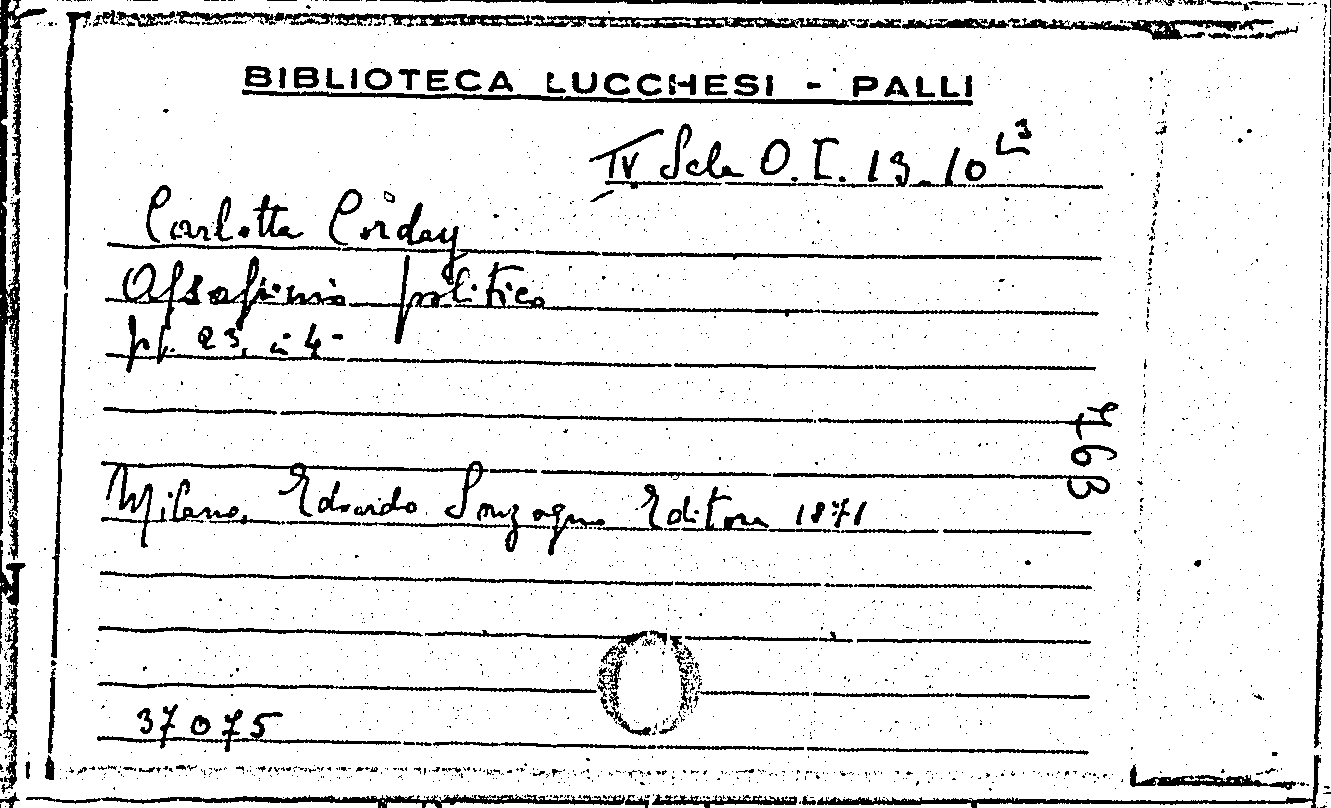 BIBLIOTECA LUCCHESI - PALLI
IV Sala O. I. 19. 10 L3
Carlotta Corday
Assassinio politico
pp. 23, in 4-
Milano, Edoardo Sonzogno Editore 1871
37075
763